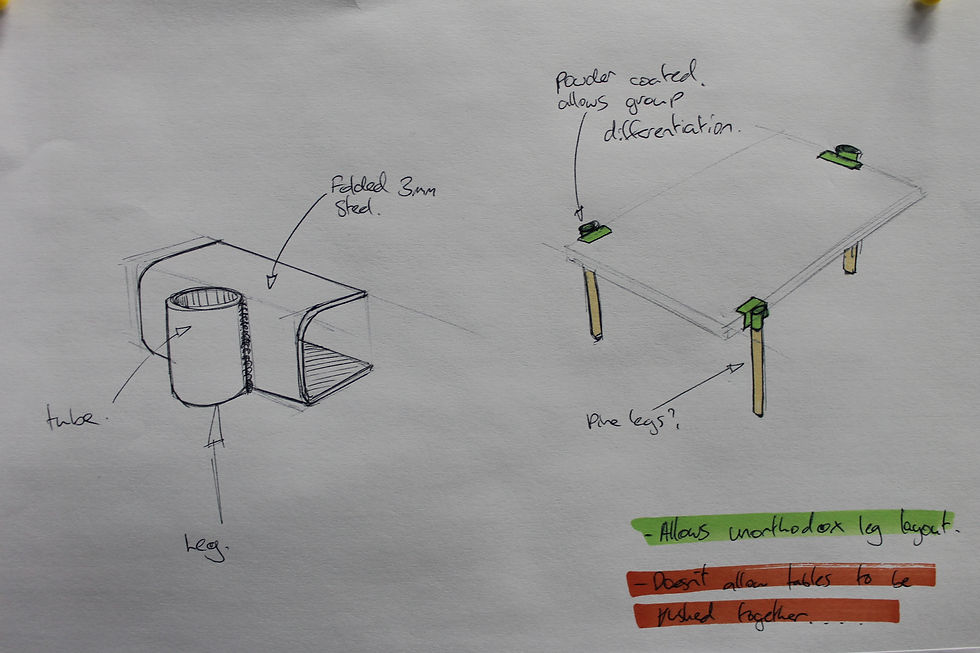 Folded 3mm
Steel.
tube.
Leg.
Powder coated.
allows group
differentiation.
Pine legs?
- Allows unorthodox leg layout.
- Doesn't allow tables to be
pushed together....